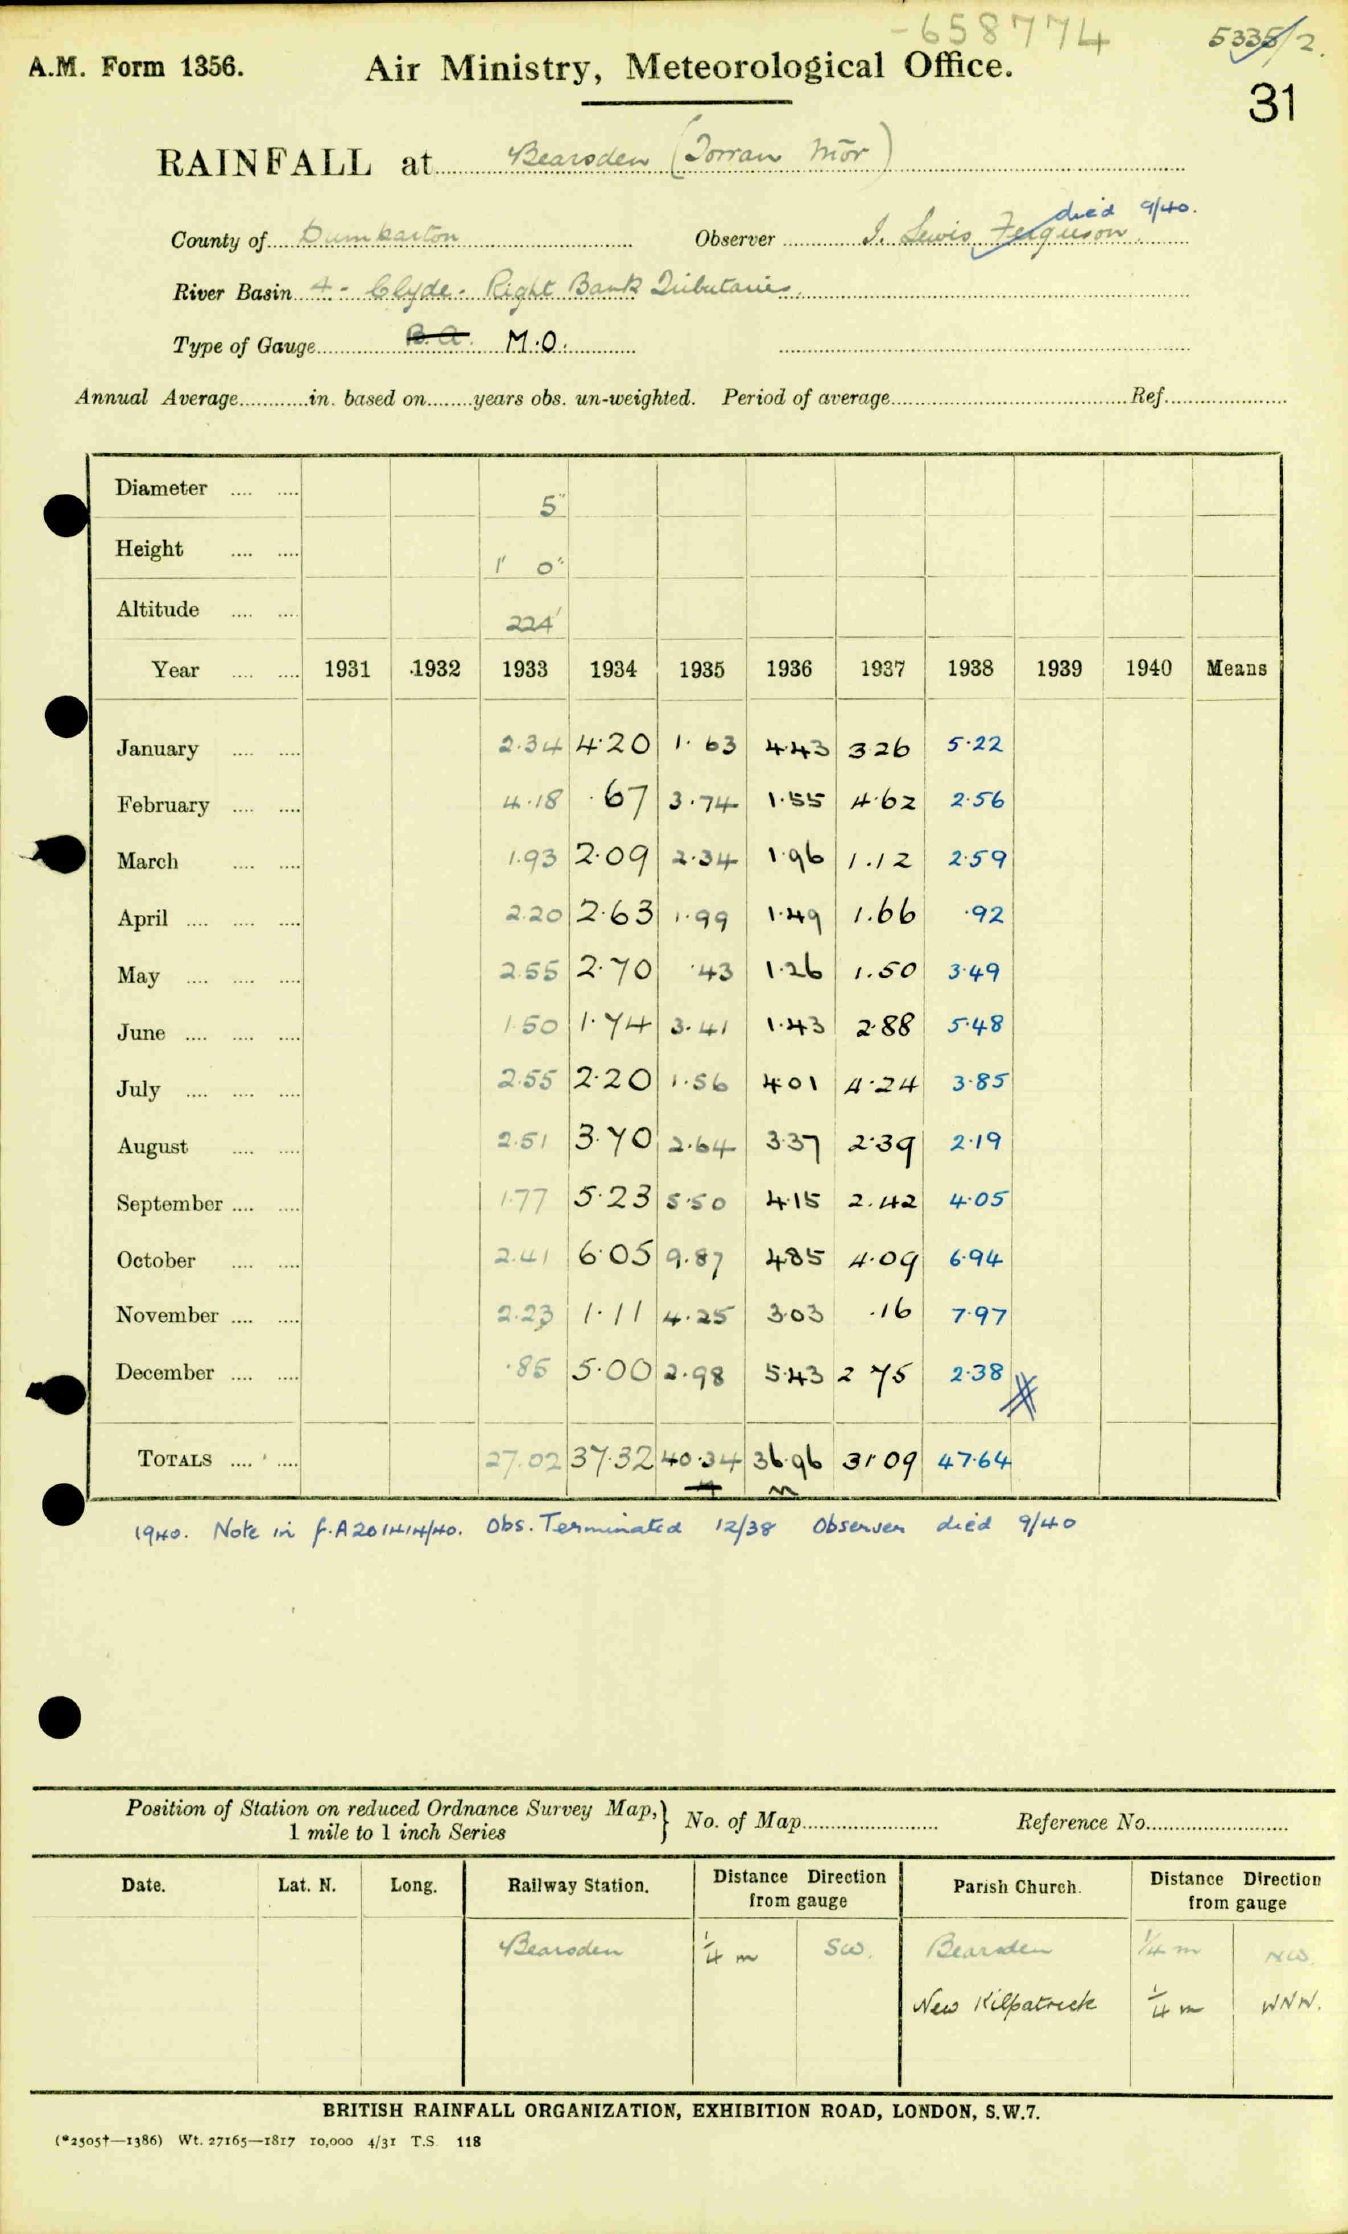 -658774
5335/2.
A.M. Form 1356.
Air Ministry, Meteorological Office.
31
RAINFALL at Bearsden (Torran Mōr)
died 9/40.
County of Dumbarton Observer I. Lewis Ferguson.
River Basin 4 - Clyde - Right Bank Tributaries.
Type of Gauge B.A. M.O.
Annual Average in. based on years obs. un-weighted. Period of average Ref.
Diameter 5"
Height 1' 0"
Altitude 224'
Year 1931 1932 1933 1934 1935 1936 1937 1938 1939 1940 Means
January 2.34 4.20 1.63 4.43 3.26 5.22
February 4.18 .67 3.74 1.55 4.62 2.56
March 1.93 2.09 2.34 1.96 1.12 2.59
April 2.20 2.63 1.99 1.49 1.66 .92
May 2.55 2.70 .43 1.26 1.50 3.49
June 1.50 1.74 3.41 1.43 2.88 5.48
July 2.55 2.20 1.56 4.01 4.24 3.85
August 2.51 3.70 2.64 3.37 2.39 2.19
September 1.77 5.23 5.50 4.15 2.42 4.05
October 2.41 6.05 9.87 4.85 4.09 6.94
November 2.23 1.11 4.25 3.03 .16 7.97
December .85 5.00 2.98 5.43 2 75 2.38
TOTALS 27.02 37.32 40.34 36.96 31.09 47.64
1940. Note in f.A201414/40. Obs. Terminated 12/38 Observer died 9/40
Position of Station on reduced Ordnance Survey Map,} No. of Map Reference No.
1 mile to 1 inch Series
Date. Lat. N. Long. Railway Station. Distance Direction from gauge Parish Church. Distance Direction from gauge
Bearsden 1/4 m SW. Bearsden 1/4 m NW.
New Kilpatrick 1/4 m WNW.
BRITISH RAINFALL ORGANIZATION, EXHIBITION ROAD, LONDON, S.W.7.
(*2505†—1386) Wt. 27165—1817 10,000 4/31 T.S. 118